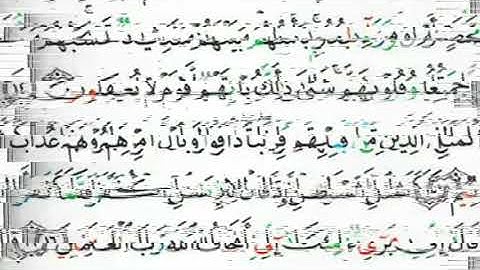 أو من وراء جدر بأسهم بينهم شديد تحسبهم
جميعا وقلوبهم شتى ذلك بأنهم قوم لا يعقلون
كمثل الذين من قبلهم قريبا ذاقوا وبال أمرهم ولهم عذاب
كمثل الشيطان إذ قال للإنسان فلما
قال إني بريء منك إني أخاف الله رب العالمين